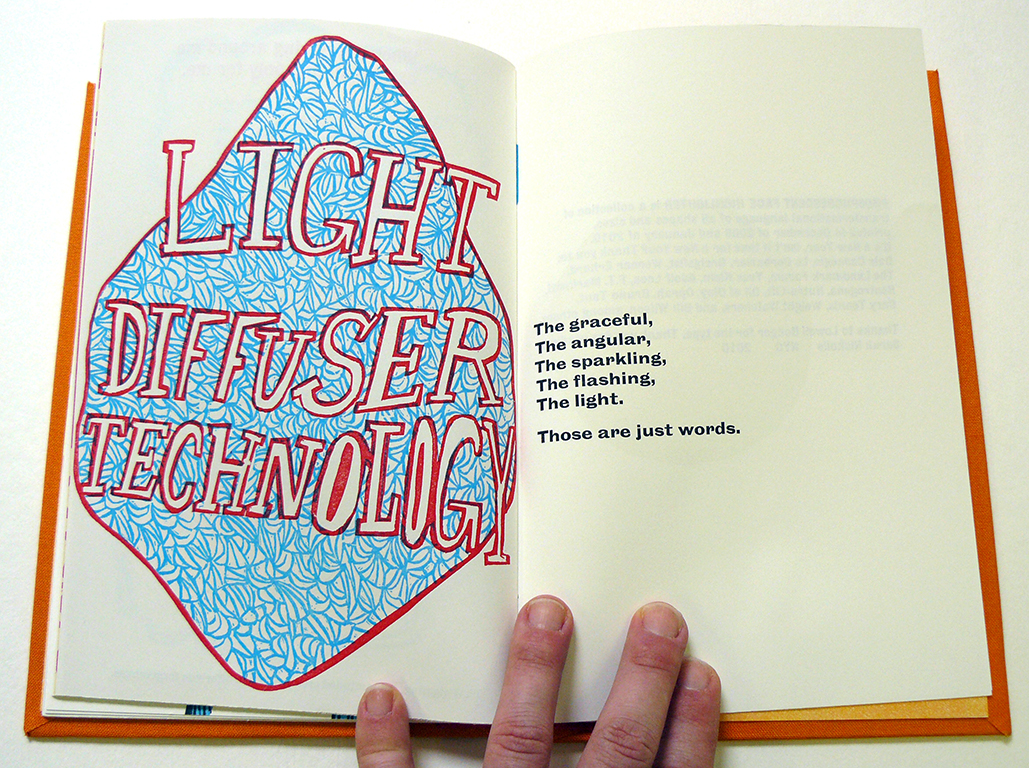 LIGHT
DIFFUSER
TECHNOLOGY
The graceful,
The angular,
The sparkling,
The flashing,
The light.
Those are just words.